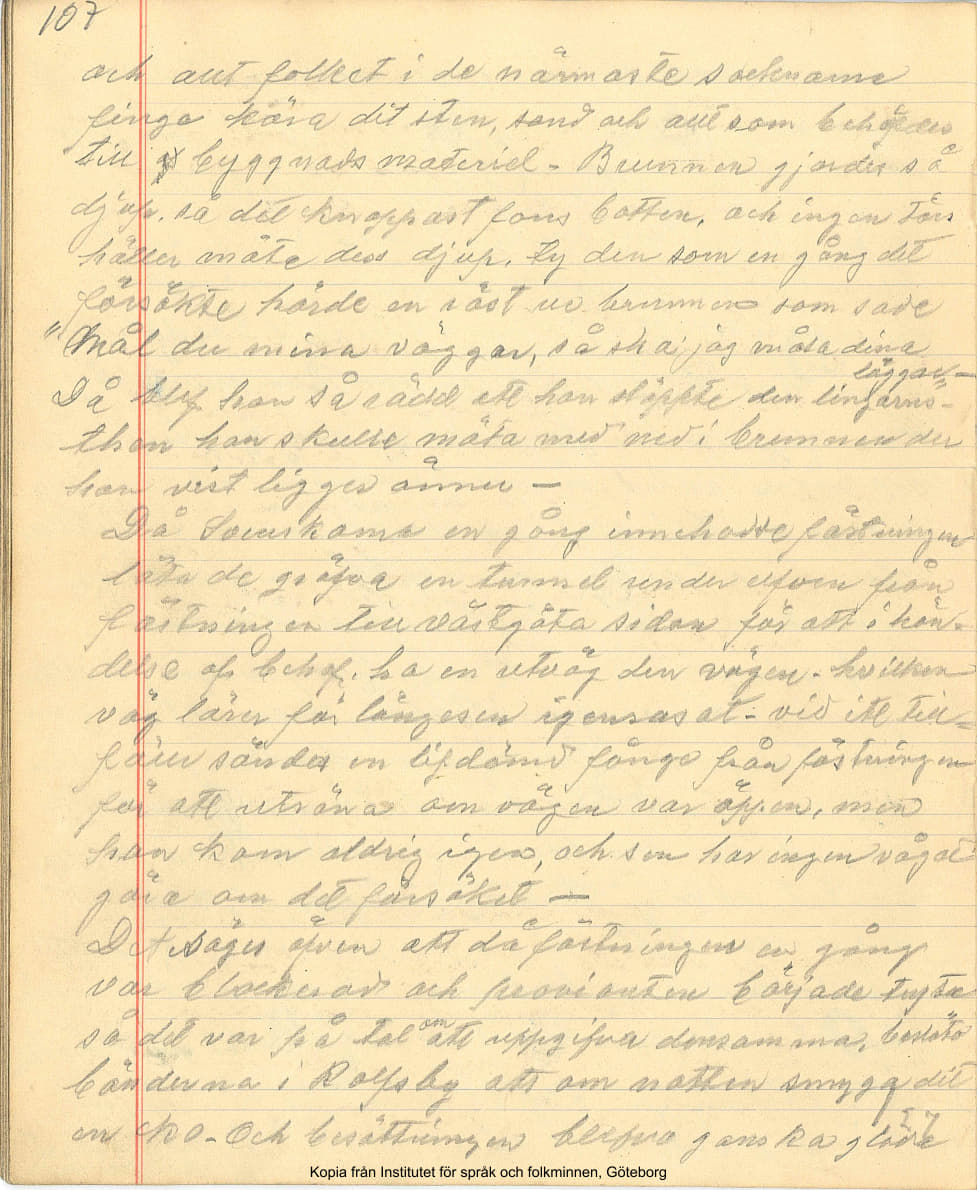 107
och allt folket i de närmaste socknarne
fingo köra dit sten, sand och allt som behöfdes
till byggnads material - Brunnen gjordes så
djup. så det knappast fans botten, och ingen törs
häller mäta dess djup. ty den som en gång det
försökte hörde en röst ur brunnen som sade
"Mål du mina väggar, så ska jag mäta dina
läggar" -
Då blef han så rädd att han släppte den lin
than han skulle mäta med ned i brunnen der
han vist ligger ännu -
Då Svenskarna en gång innehade fästningen
läto de gräfva en tunnel under elfven från
fästningen till västgöta sidan för att i hän-
delse af behof. ha en utväg den vägen - hvilken
väg lärer för längesen igenrasat - vid ett till-
fälle sändes en lifdömd fånge från fästningen
för att utröna om vägen var öppen, men
han kom aldrig igen, och sen har ingen vågat
göra om det försöket -
Det säges äfven att då fästningen en gång
var blockerad och provianten började tryta
så det var på tal om att uppgifva densamma, beslöto
bönderna i Rolfsby att om natten smyga dit
en ko - Och besättningen blefvo ganska glade
Kopia från Institutet för språk och folkminnen, Göteborg